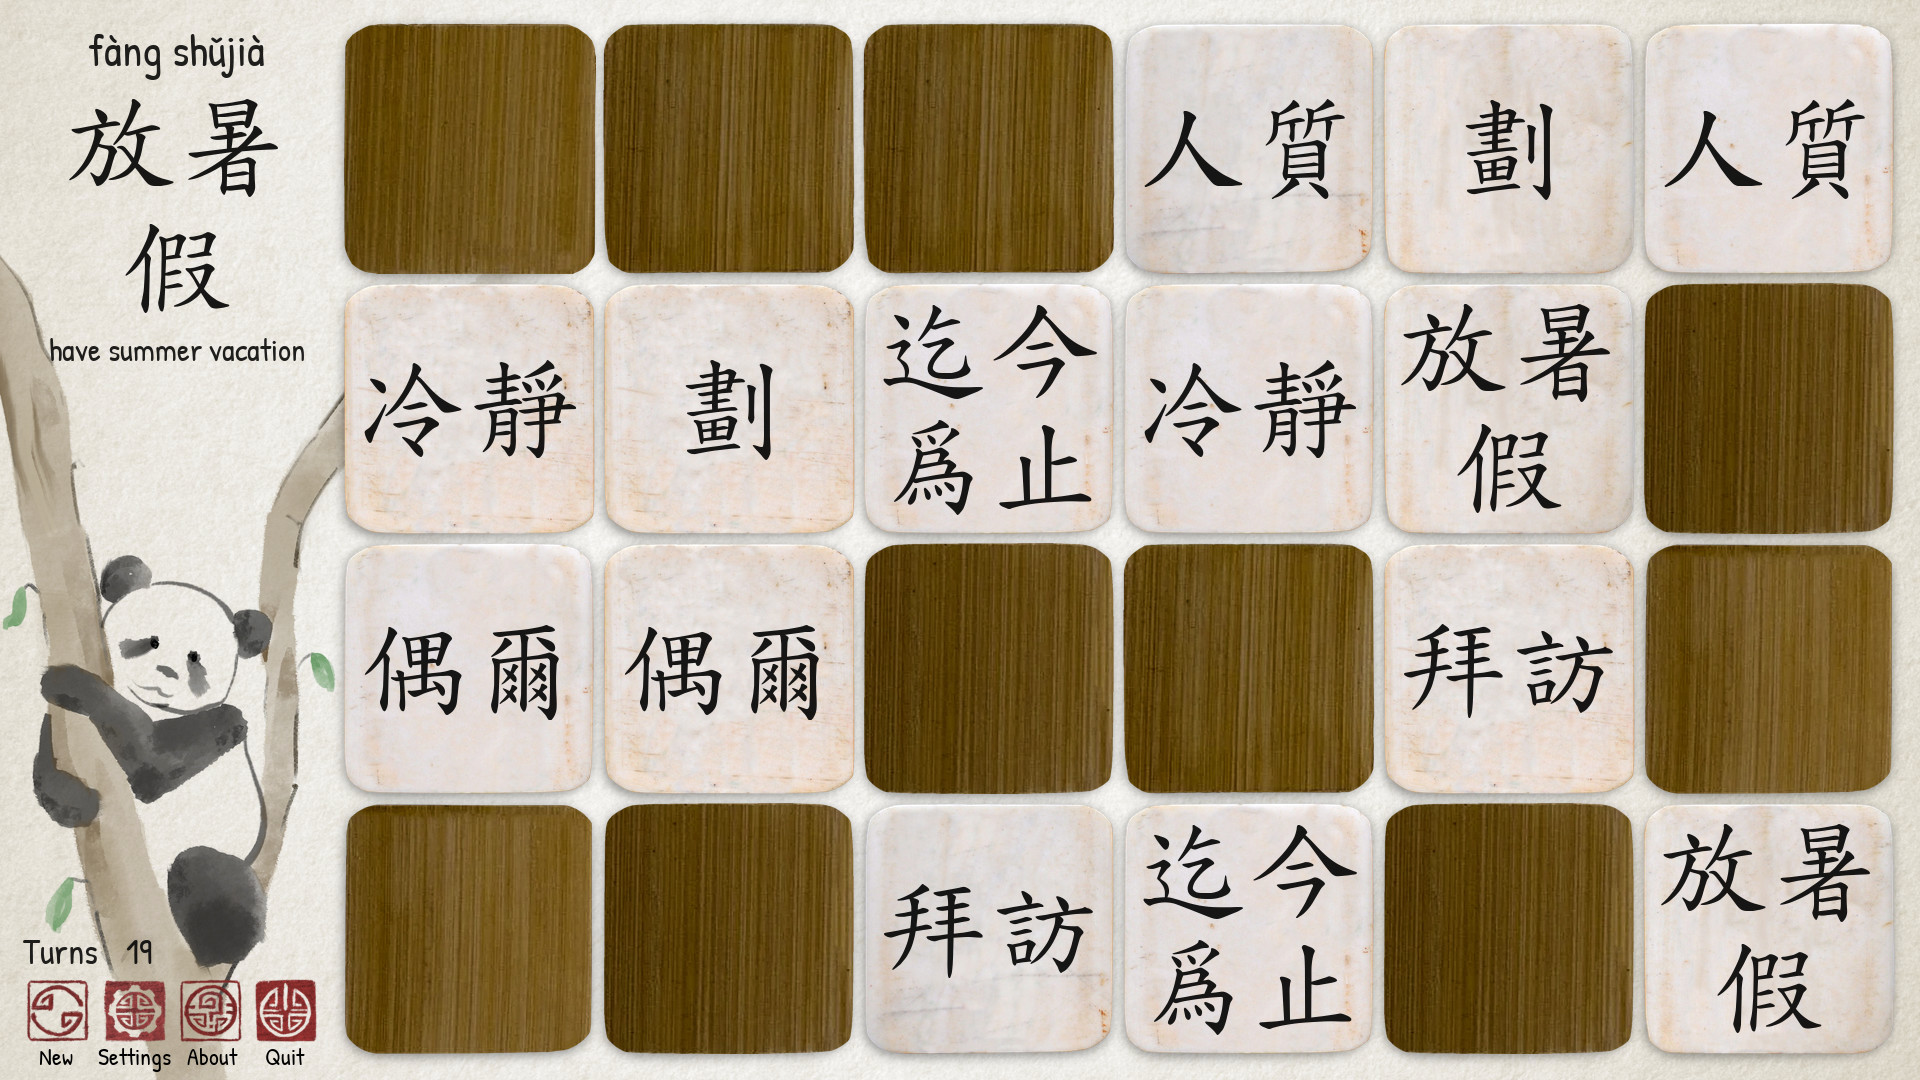 fàng shǔjià
放暑
假
have summer vacation
人質
劃
人質
冷靜
劃
迄今
爲止
冷靜
放暑
假
偶爾
偶爾
拜訪
拜訪
迄今
爲止
放暑
假
Turns 19
New Settings About Quit